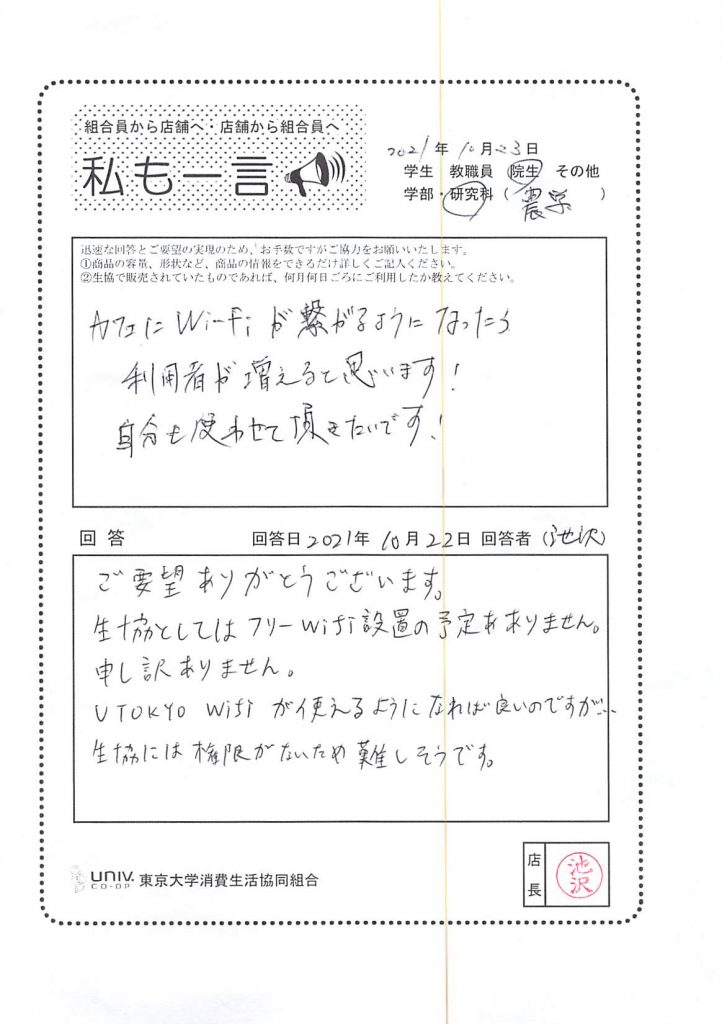 組合員から店舗へ・店舗から組合員へ
私も一言
2021年10月23日
学生 教職員 院生 その他
学部・研究科（農学）
迅速な回答とご要望の実現のため、お手数ですがご協力をお願いいたします。
①商品の容量、形状など、商品の情報をできるだけ詳しくご記入ください。
②生協で販売されていたものであれば、何月何日ごろにご利用したか教えてください。
カフェにWi-Fiが繋がるようになったら
利用者が増えると思います！
自分も使わせて頂きたいです！
回答 回答日2021年10月22日 回答者（池沢）
ご要望ありがとうございます。
生協としてはフリーWifi設置の予定がありません。
申し訳ありません。
UTOKYO Wifiが使えるようになれば良いのですが…
生協には権限がないため難しそうです。
店長
池沢
UNIV. CO-OP 東京大学消費生活協同組合